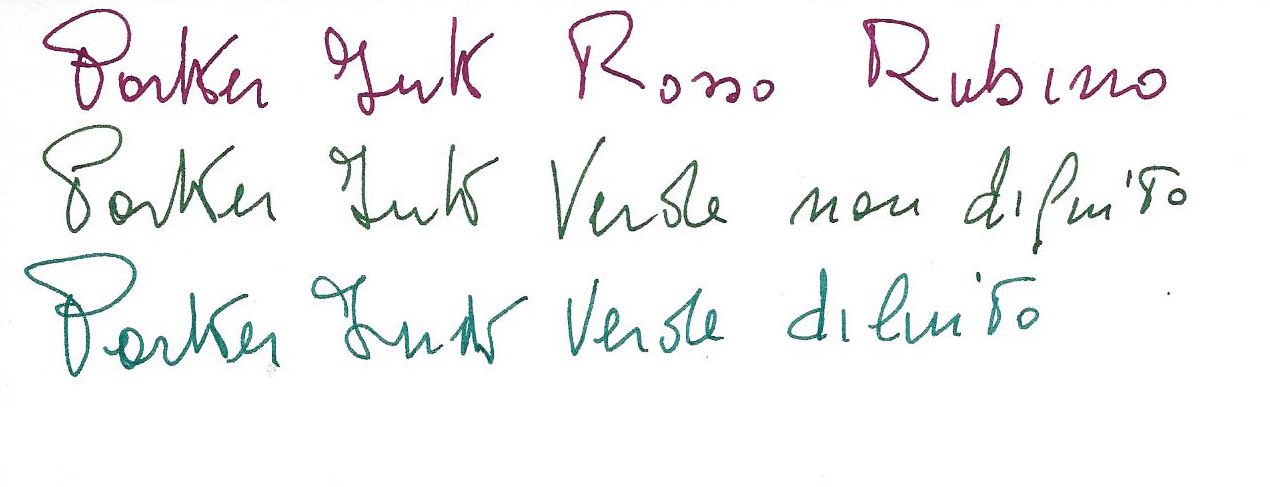 Parker Ink Rosso Rubino
Parker Ink Verde non diluito
Parker Ink Verde diluito